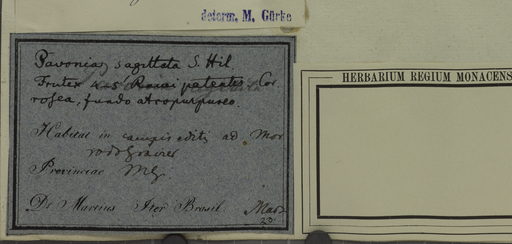 determ. M. Gürke
Pavonia sagittata S. Hil
Frutex 4-5 Rami patentes Cor.
rosea, fundo atropurpureo.
Habitat in campis editis ad Mor
Provinciae MG.
Dr Martius Iter Brasil.
HERBARIUM REGIUM MONACENS